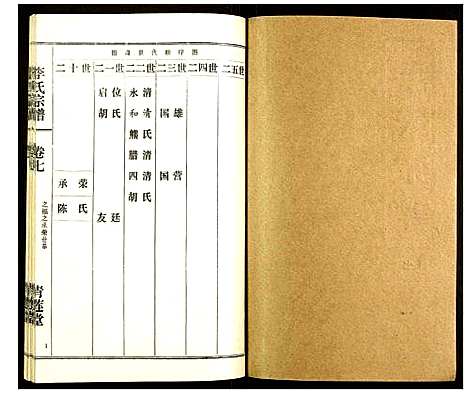 李氏宗譜
卷七
青蓮堂
1
二十世
二一世
二二世
二三世
二四世
二五世
承荣
陈氏
启位
胡氏
友廷
永清
和清
熊氏
腊清
四清
胡氏
国雄
国营